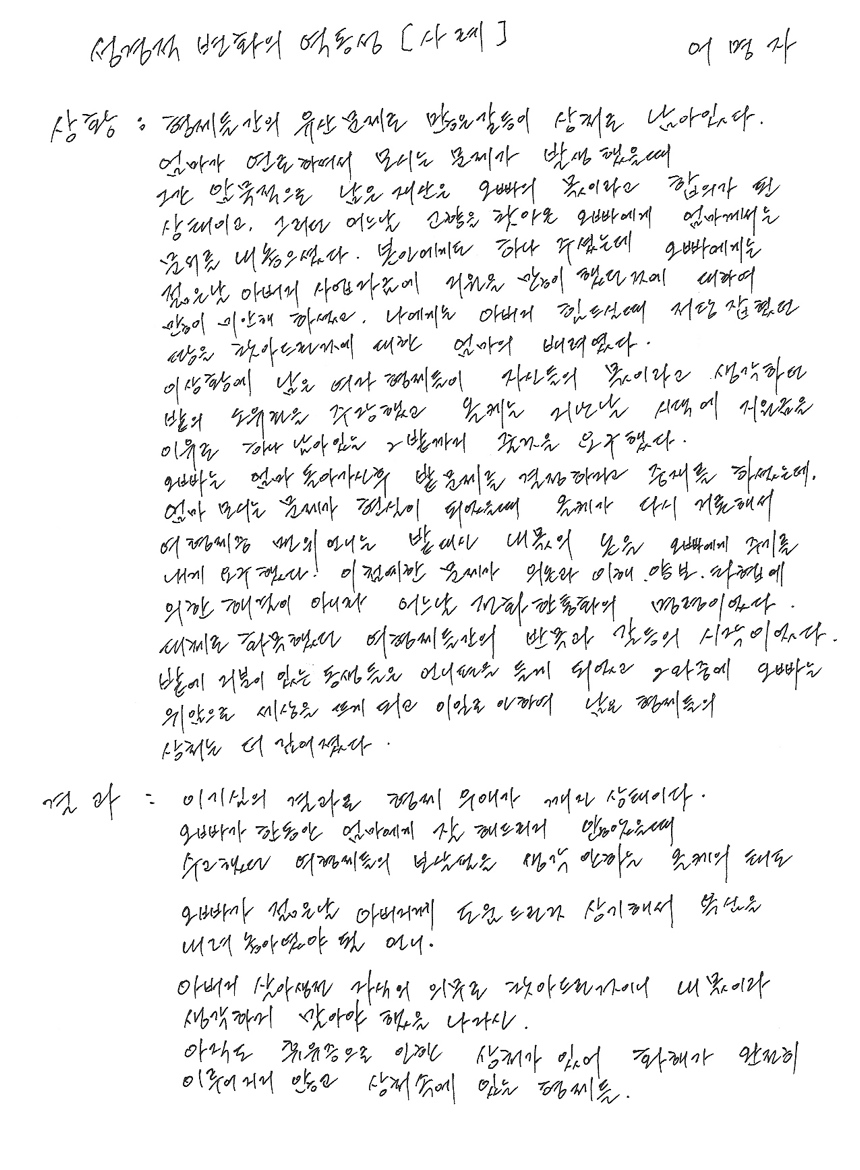 성경적 변화의 역동성 [사례]
이명자
상황 : 형제들간의 유산문제로 많은갈등이 상처로 남아있다.
엄마가 연로하면서 모시는 문제가 발생했을때
그간 암묵적으로 남은 재산은 오빠의 몫이라고 합의가 된
상태이고. 그러던 어느날 고향을 찾아온 오빠에게 엄마께서는
문서를 내놓으셨다. 본인에게도 하나 주셨는데 오빠에게는
젊은날 아버지 사업자금에 지원을 많이 했던것에 대하여
많이 미안해 하셨고. 나에게는 아버지 힘드실때 저당잡혔던
땅을 찾아드린것에 대한 엄마의 배려였다.
이상황에 남은 여자 형제들이 자신들의 몫이라고 생각하던
밭의 소유권을 주장했고 올케는 지난날 시댁에 지원금을
이유로 하나 남아있는 밭까지 줄것을 요구했다.
오빠는 엄마 돌아가신후 밭문제를 결정하라고 중재를 하셨는데.
엄마 모시는 문제가 현실이 되었을때 올케가 다시 거론해서
여형제중 맨위 언니는 밭대신 내몫의 논을 오빠에게 주기를
내게 요구했다. 이 첨예한 문제가 의논과 이해. 양보. 타협에
의한 해결이 아니라 어느날 전화한통화의 명령이었다.
대체로 화목했던 여형제들간의 반목과 갈등의 시작이었다.
밭에 지분이 있는 동생들은 언니편을 들게 되었고 와중에 오빠는
위암으로 세상을 뜨게 되고 이일로 인하여 남은 형제들의
상처는 더 깊어졌다.
결과 : 이기심의 결과로 형제 우애가 깨진 상태이다.
오빠가 한동안 엄마에게 잘 해드리지 않았을때
수고했던 여형제들의 보살핌을 생각 안하는 올케의 태도
오빠가 젊은날 아버지께 도움드린것 상기해서 욕심을
내려 놓아였야 될 언니.
아버지 살아생전 자식의 의무로 찾아드린것이니 내몫이라
생각하지 말아야 했을 나자신.
아직도 후유증으로 인한 상처가 있어 화해가 완전히
이루어지지 않고 상처속에 있는 형제들.